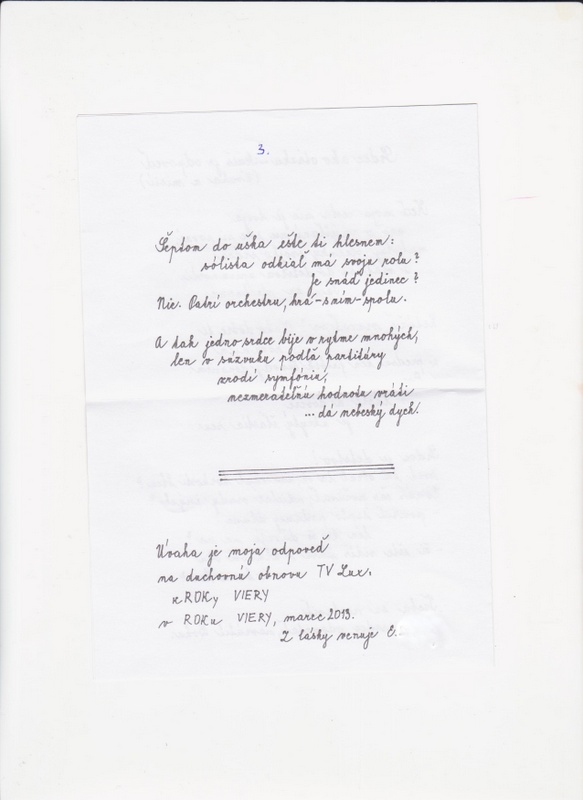 3.
Šeptom do uška ešte ti hlesnem:
sólista odkiaľ má svoju rolu?
Je snáď jedinec?
Nie. Patrí orchestru, hrá-s ním-spolu.
A tak jedno srdce bije v rytme mnohých,
len v súzvuku podľa partitúry
zrodí symfóniu,
nezmerateľnú hodnotu vráti
... dá nebeský dych.
Úvaha je moja odpoveď
na duchovnú obnovu TV Lux.
k ROKu VIERY
v ROKu VIERY, marec 2013.
Z lásky venuje E.